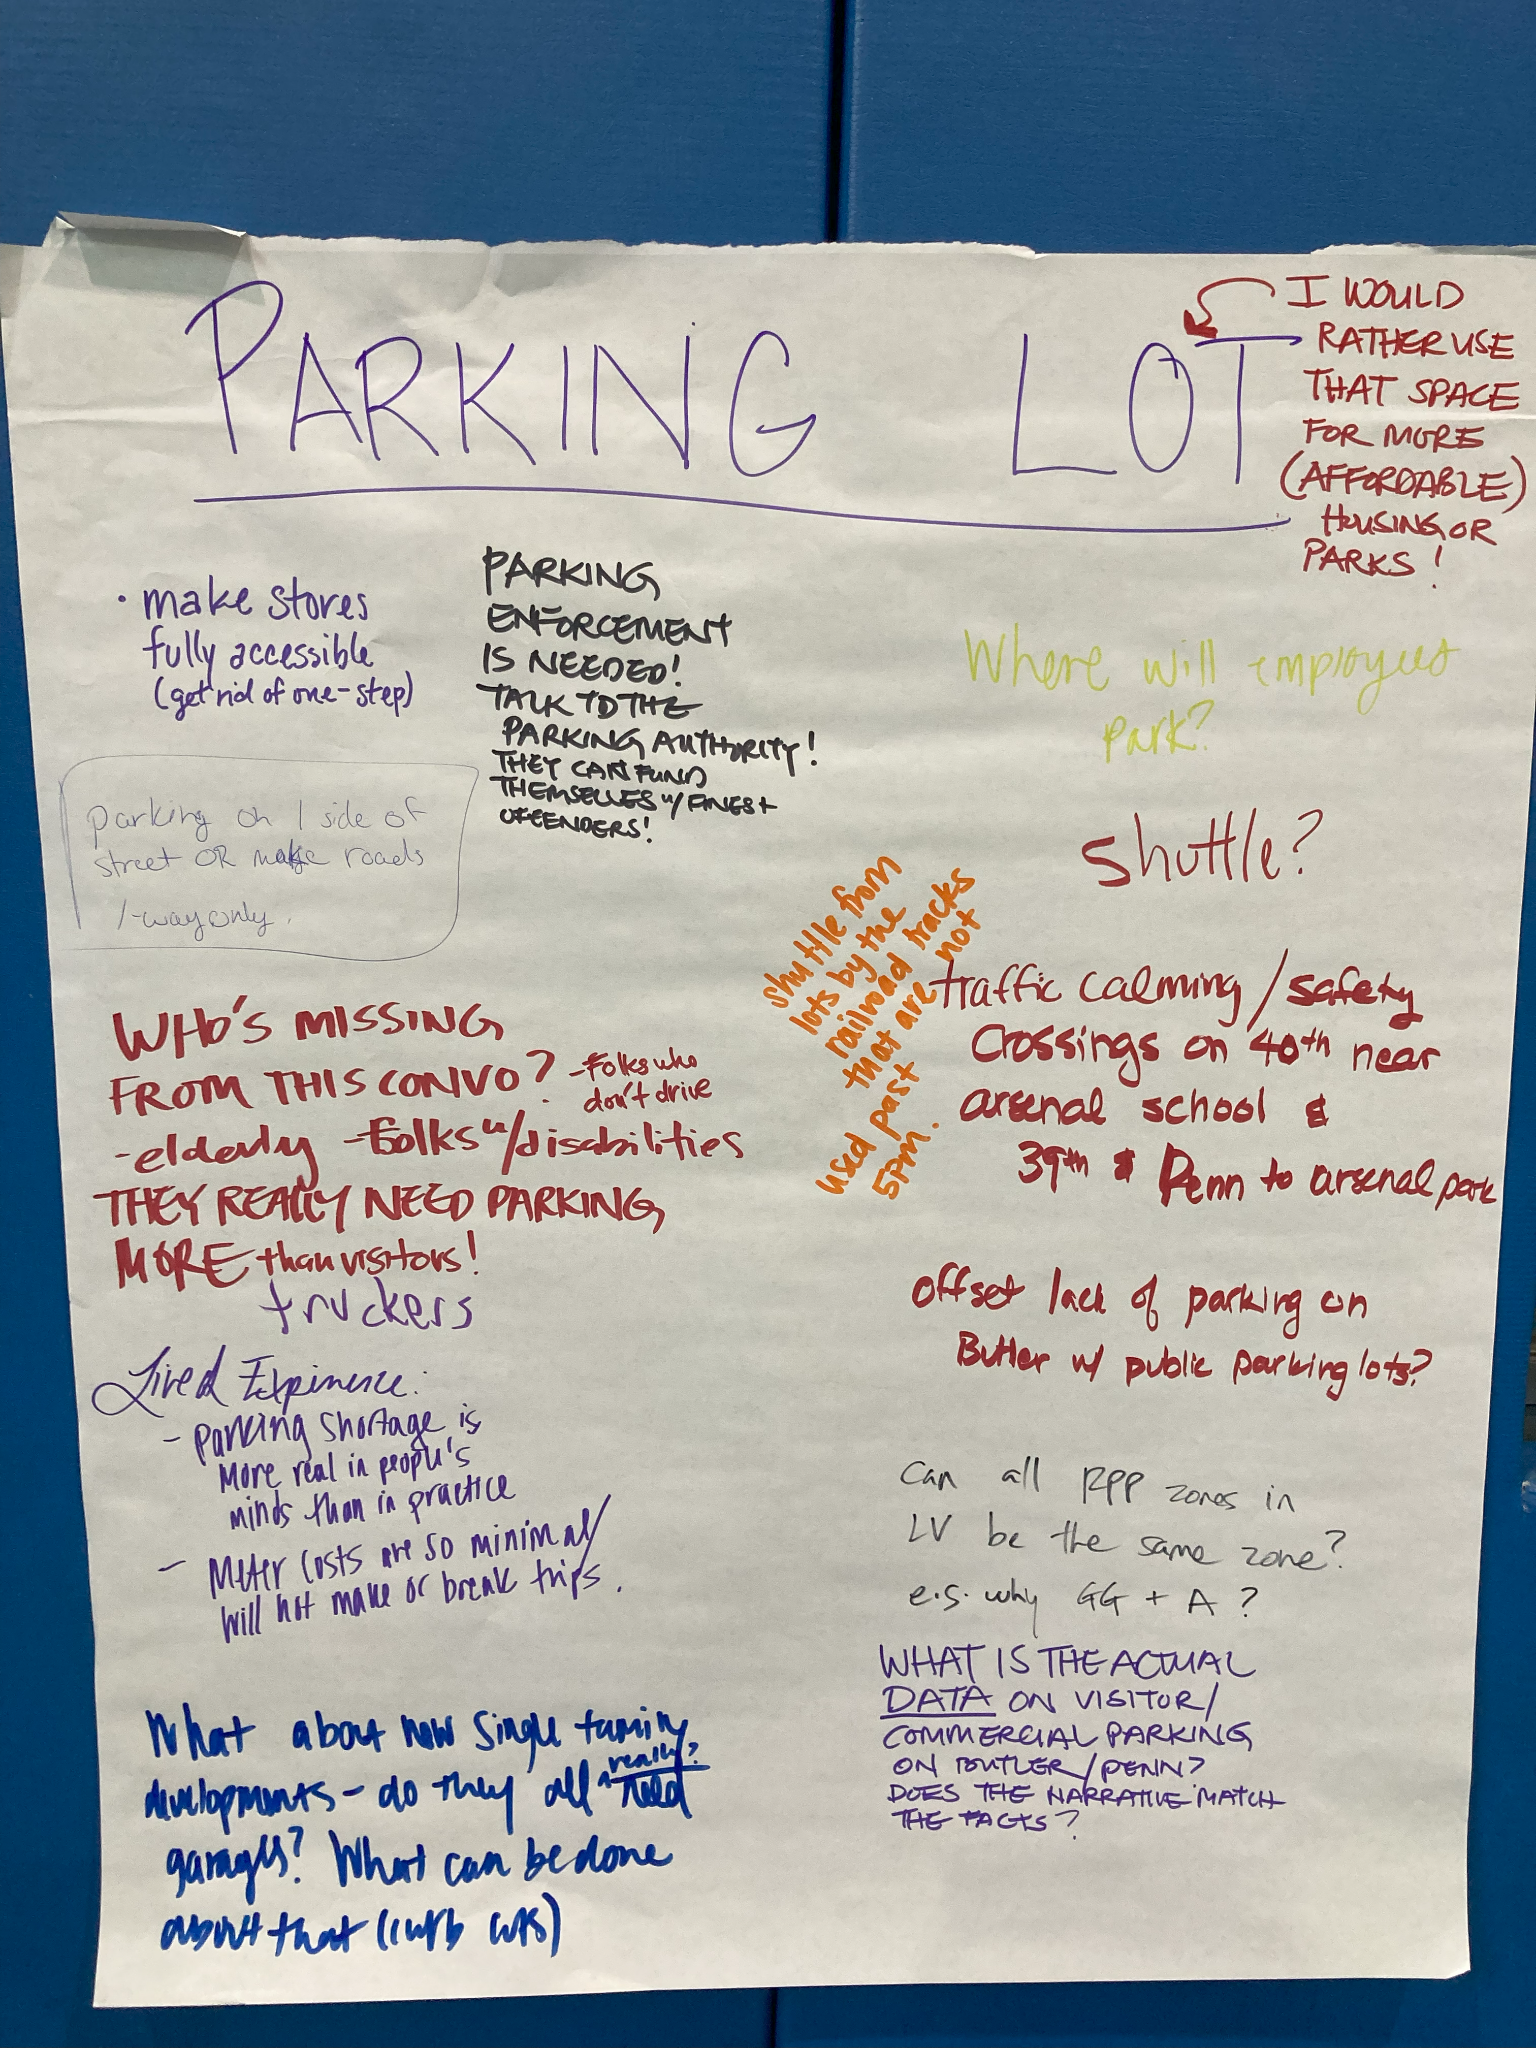 PARKING LOT
I WOULD
RATHER USE
THAT SPACE
FOR MORE
(AFFORDABLE)
HOUSING OR
PARKS!
• make stores
fully accessible
(get rid of one-step)
PARKING
ENFORCEMENT
IS NEEDED!
TALK TO THE
PARKING AUTHORITY!
THEY CAN FUND
THEMSELVES w/ FINES +
OFFENDERS!
Where will employees
park?
parking on 1 side of
street OR make roads
1-way only.
shuttle?
shuttle from
lots by the
railroad tracks
that are not
used past
5pm.
traffic calming / safety
crossings on 40th near
arsenal school &
39th & Penn to arsenal park
WHO'S MISSING
FROM THIS CONVO?
- Folks who
don't drive
- elderly - Folks w/disabilities
THEY REALLY NEED PARKING
MORE than visitors!
truckers
offset lack of parking on
Butler w/ public parking lots?
Lived Experience:
- parking shortage is
more real in people's
minds than in practice
- Meter costs are so minimal/
will not make or break trips.
Can all RPP zones in
LV be the same zone?
e.g. why GG + A?
WHAT IS THE ACTUAL
DATA ON VISITOR/
COMMERCIAL PARKING
ON BUTLER/PENN?
DOES THE NARRATIVE MATCH
THE FACTS?
What about new single family
developments - do they all ^really? need
garages? What can be done
about that (curb cuts)